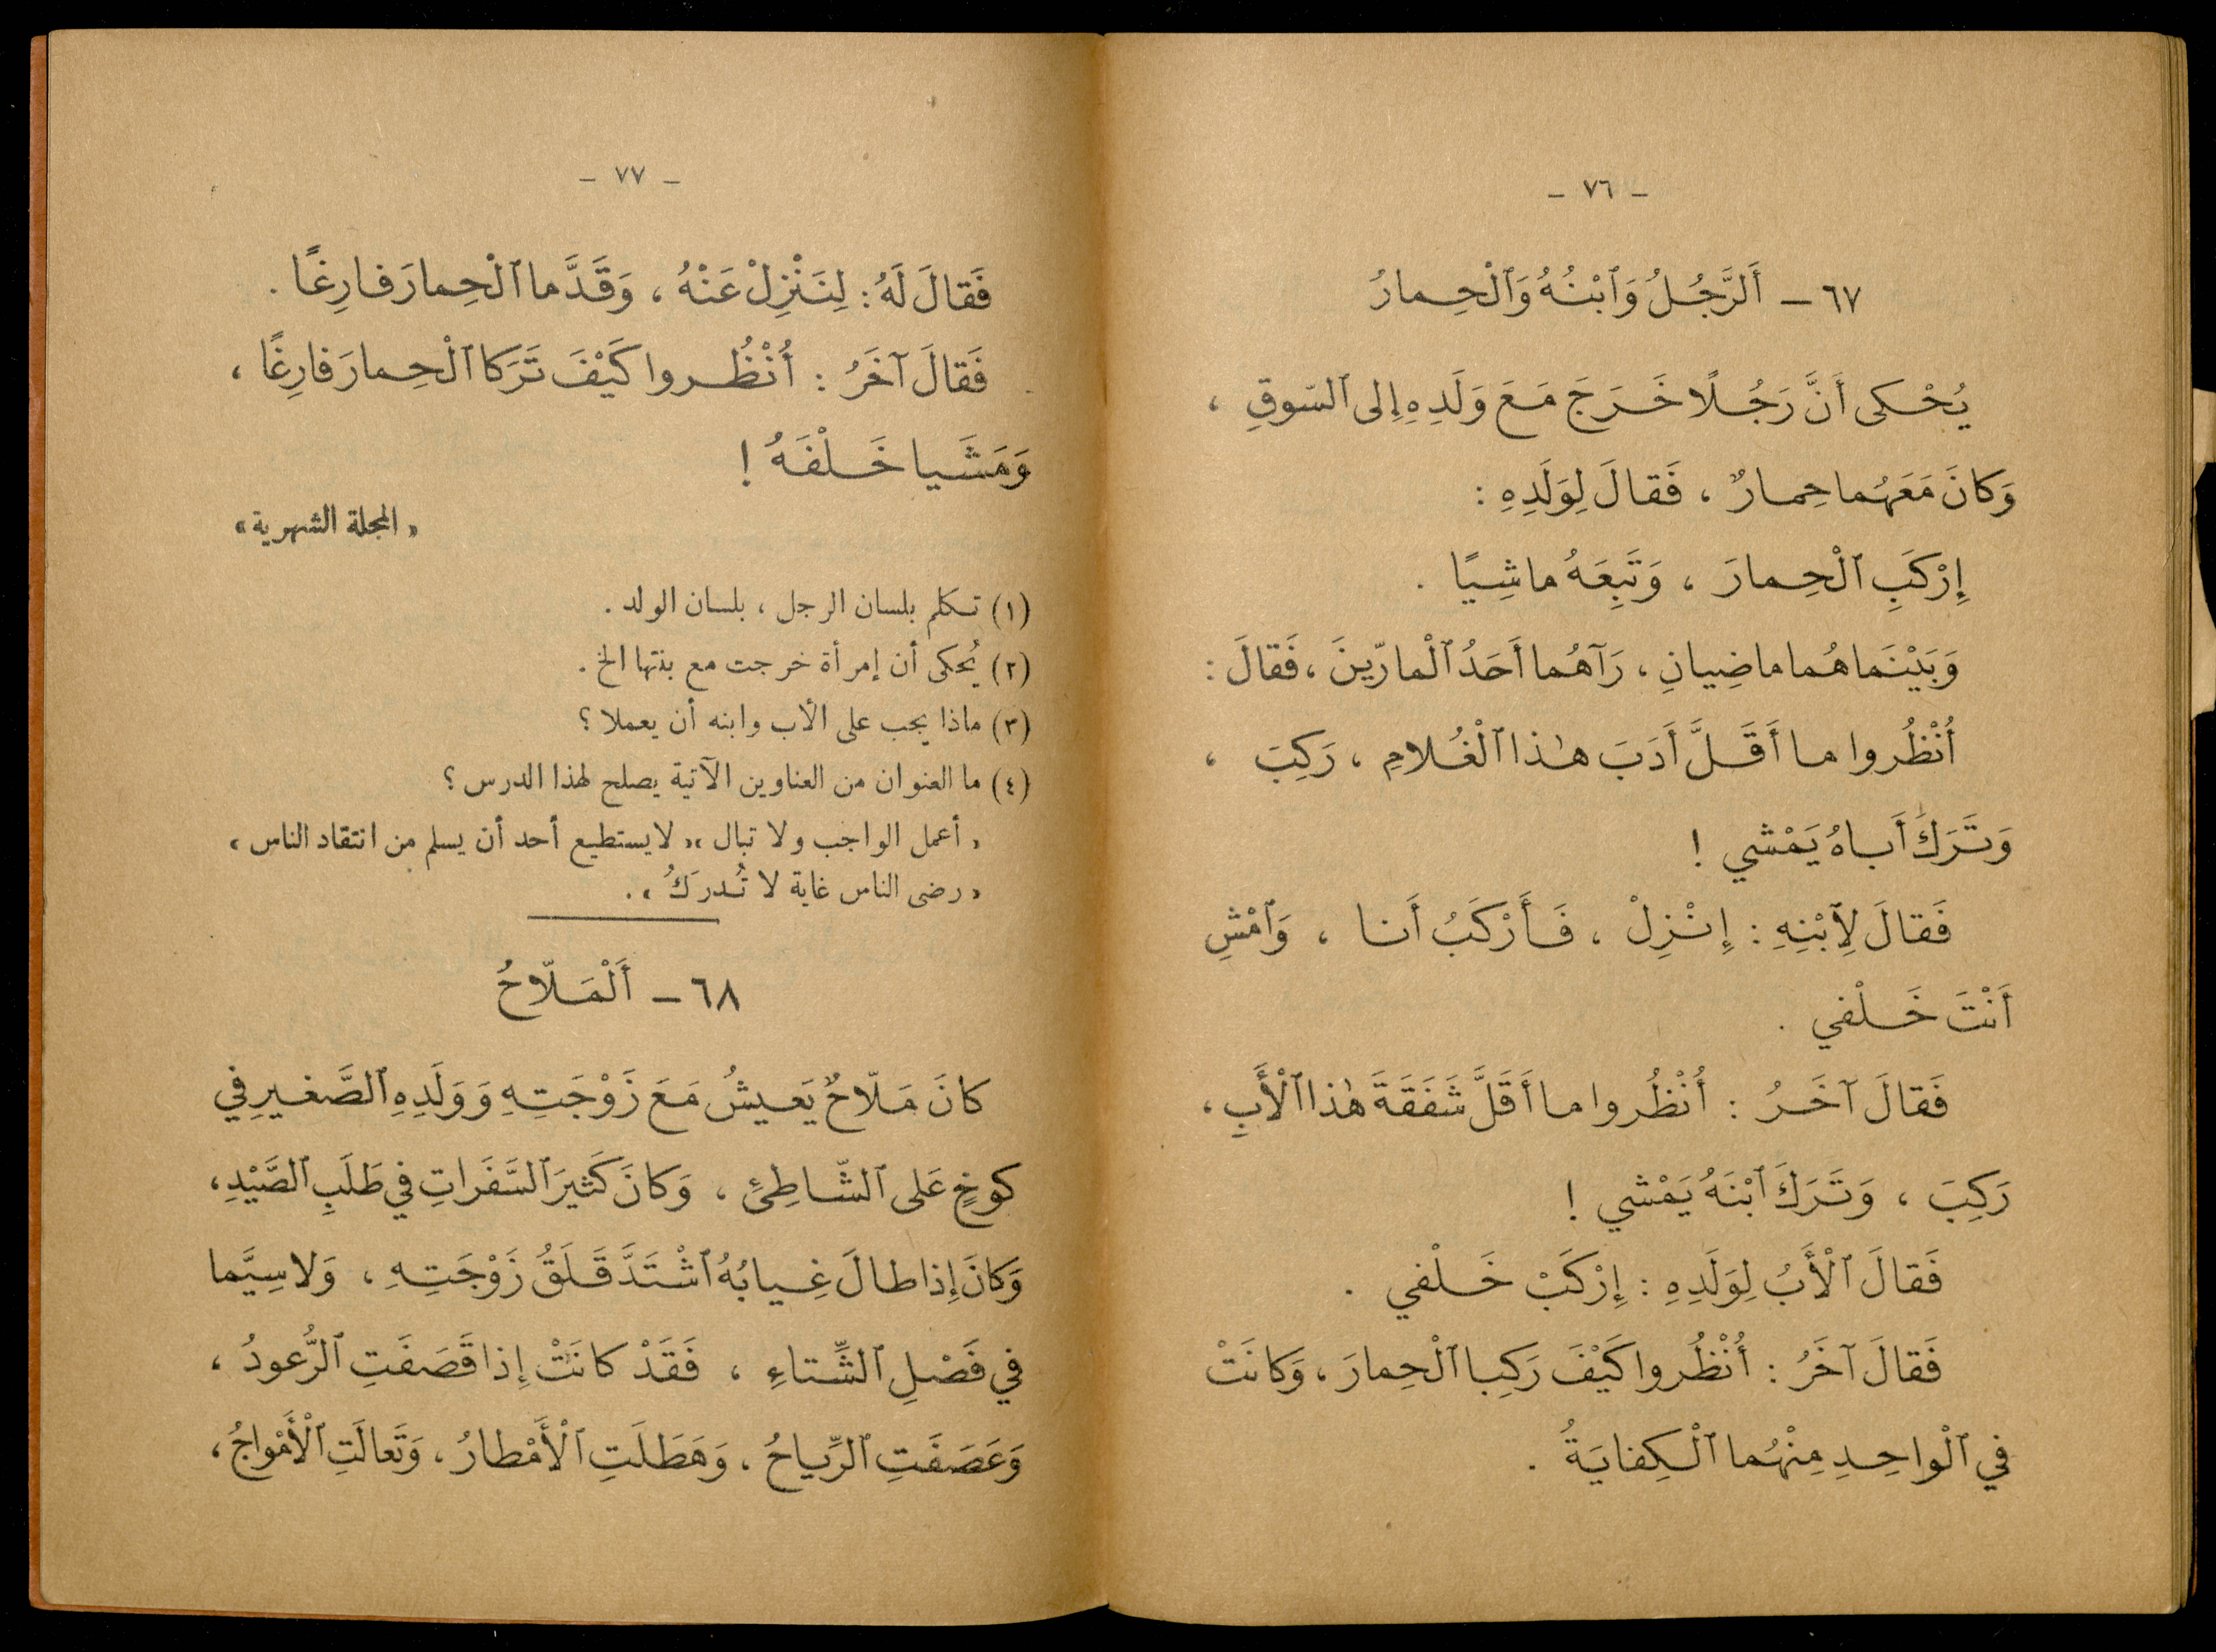 - ٧٦ -
٦٧ - أَلرَّجُلُ وَٱبْنُهُ وَٱلْحِمارُ
يُحْكى أَنَّ رَجُلًا خَرَجَ مَعَ وَلَدِهِ إِلى ٱلسّوقِ ،
وَكانَ مَعَهُما حِمارٌ ، فَقالَ لِوَلَدِهِ :
إِرْكَبِ ٱلْحِمارَ ، وَتَبِعَهُ ماشِيًا .
وَبَيْنَما هُما ماضِيانِ ، رَآهُما أَحَدُ ٱلْمارّينَ ، فَقالَ :
أُنْظُروا ما أَقَلَّ أَدَبَ هٰذا ٱلْغُلامِ ، رَكِبَ ،
وَتَرَكَ أَباهُ يَمْشي !
فَقالَ لِٱبْنِهِ : إِنْزِلْ ، فَأَرْكَبُ أَنا ، وَٱمْشِ
أَنْتَ خَلْفي .
فَقالَ آخَرُ : أُنْظُروا ما أَقَلَّ شَفَقَةَ هٰذا ٱلْأَبِ ،
رَكِبَ ، وَتَرَكَ ٱبْنَهُ يَمْشي !
فَقالَ ٱلْأَبُ لِوَلَدِهِ : إِرْكَبْ خَلْفي .
فَقالَ آخَرُ : أُنْظُروا كَيْفَ رَكِبا ٱلْحِمارَ ، وَكانَتْ
في ٱلْواحِدِ مِنْهُما ٱلْكِفايَةُ .
- ٧٧ -
فَقالَ لَهُ : لِنَنْزِلْ عَنْهُ ، وَقَدَّما ٱلْحِمارَ فارِغًا .
فَقالَ آخَرُ : أُنْظُروا كَيْفَ تَرَكا ٱلْحِمارَ فارِغًا ،
وَمَشَيا خَلْفَهُ !
« المجلة الشهرية »
(١) تكلم بلسان الرجل ، بلسان الولد .
(٢) يُحكى أن إمرأة خرجت مع بنتها الخ .
(٣) ماذا يجب على الأب وابنه أن يعملا ؟
(٤) ما العنوان من العناوين الآتية يصلح لهذا الدرس ؟
« أعمل الواجب ولا تبال » « لا يستطيع أحد أن يسلم من انتقاد الناس »
« رضى الناس غاية لا تُدرَكُ » .
٦٨ - أَلْمَلّاحُ
كانَ مَلّاحٌ يَعيشُ مَعَ زَوْجَتِهِ وَوَلَدِهِ ٱلصَّغيرِ في
كوخٍ عَلى ٱلشّاطِئِ ، وَكانَ كَثيرَ ٱلسَّفَراتِ في طَلَبِ ٱلصَّيْدِ ،
وَكانَ إِذا طالَ غِيابُهُ ٱشْتَدَّ قَلَقُ زَوْجَتِهِ ، وَلا سِيَّما
في فَصْلِ ٱلشِّتاءِ ، فَقَدْ كانَتْ إِذا قَصَفَتِ ٱلرُّعودُ ،
وَعَصَفَتِ ٱلرِّياحُ ، وَهَطَلَتِ ٱلْأَمْطارُ ، وَتَعالَتِ ٱلْأَمْواجُ ،